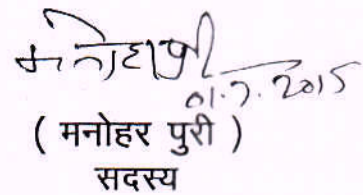 मनोहर पुरी
01.7.2015
( मनोहर पुरी )
सदस्य